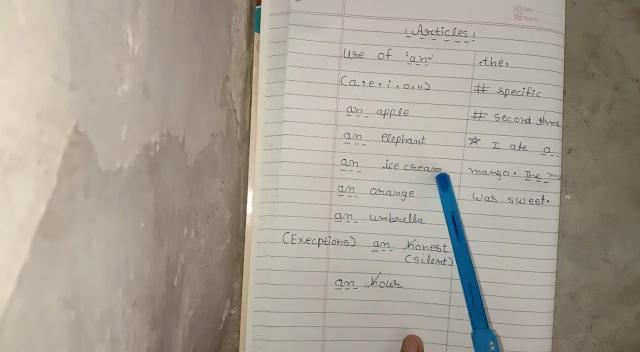 Articles
use of "an"
(a, e, i, o, u)
an apple
an elephant
an ice cream
an orange
an umbrella
(Execptions) an honest
(silent)
an hour
the,
# specific
# second
* I ate a
mango. The
was sweet.